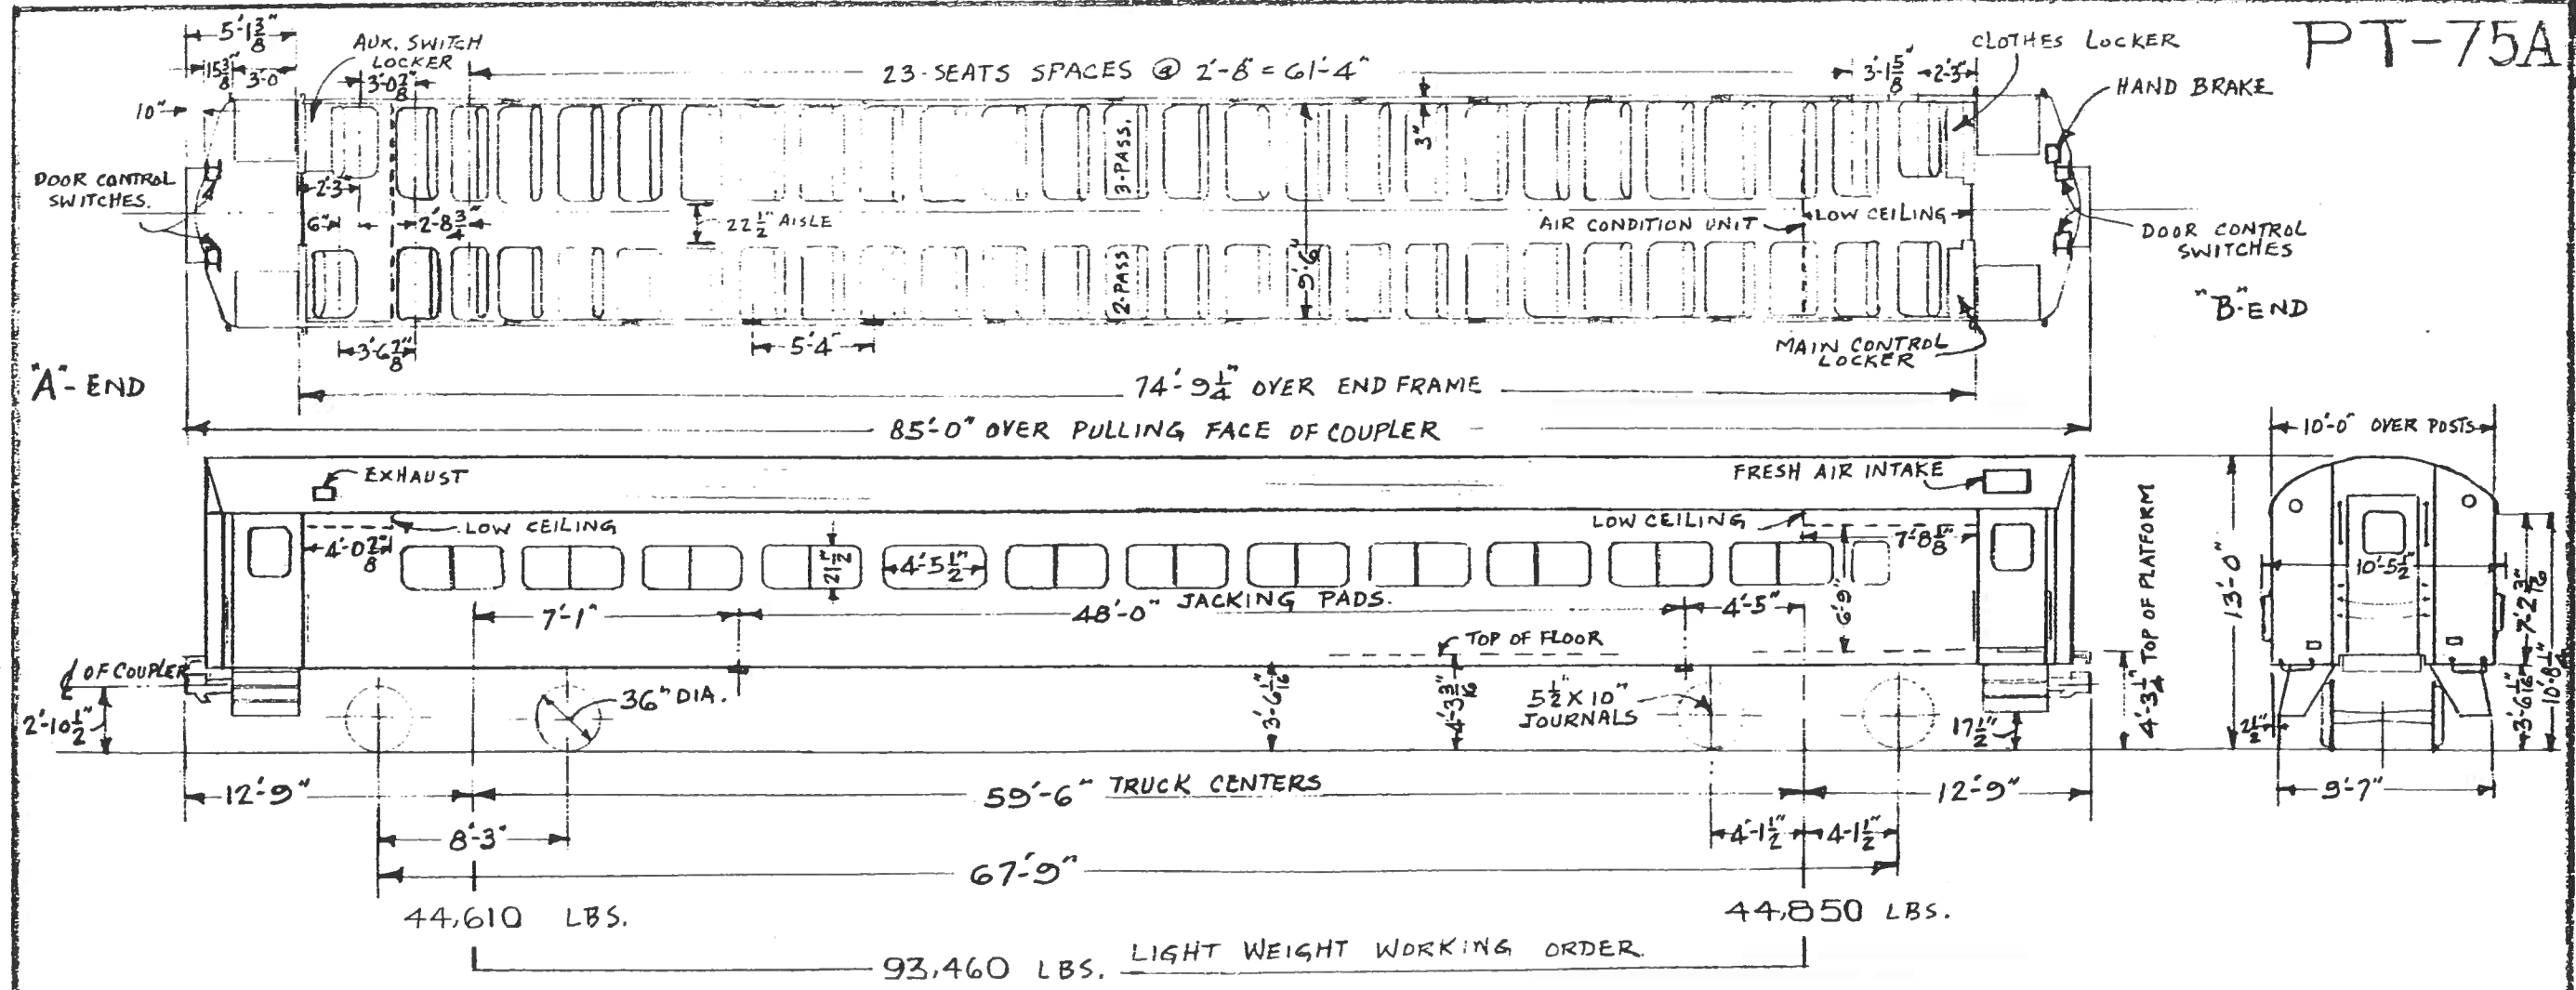 PT-75A
5'-1 3/8"
15 3/8"
3'-0"
10"
AUX. SWITCH
LOCKER
3'-0 7/8"
23-SEATS SPACES @ 2'-8" = 61'-4"
3'-1 5/8"
2'-3"
CLOTHES LOCKER
HAND BRAKE
DOOR CONTROL
SWITCHES.
2'-3"
6"
2'-8 3/4"
22 1/2" AISLE
3-PASS.
2-PASS
3"
9'-6"
AIR CONDITION UNIT
LOW CEILING
DOOR CONTROL
SWITCHES
"B"-END
3'-6 7/8"
5'-4"
MAIN CONTROL
LOCKER
"A"-END
74'-9 1/4" OVER END FRAME
85'-0" OVER PULLING FACE OF COUPLER
10'-0" OVER POSTS
EXHAUST
FRESH AIR INTAKE
LOW CEILING
LOW CEILING
4'-0 7/8"
21 1/2"
4'-5 1/2"
7'-8 1/8"
6'-9"
7'-1"
48'-0" JACKING PADS.
4'-5"
TOP OF FLOOR
℄ OF COUPLER
2'-10 1/2"
36" DIA.
3'-6 1/16"
4'-3 3/16"
5 1/2 X 10"
JOURNALS
17 1/2"
4'-3 1/4" TOP OF PLATFORM
13'-0"
10'-5 1/2"
7'-2 3/16"
3'-6 1/16"
10'-8 1/4"
2 1/2"
9'-7"
12'-9"
59'-6" TRUCK CENTERS
12'-9"
8'-3"
4'-1 1/2"
4'-1 1/2"
67'-9"
44,610 LBS.
44,850 LBS.
93,460 LBS. LIGHT WEIGHT WORKING ORDER.